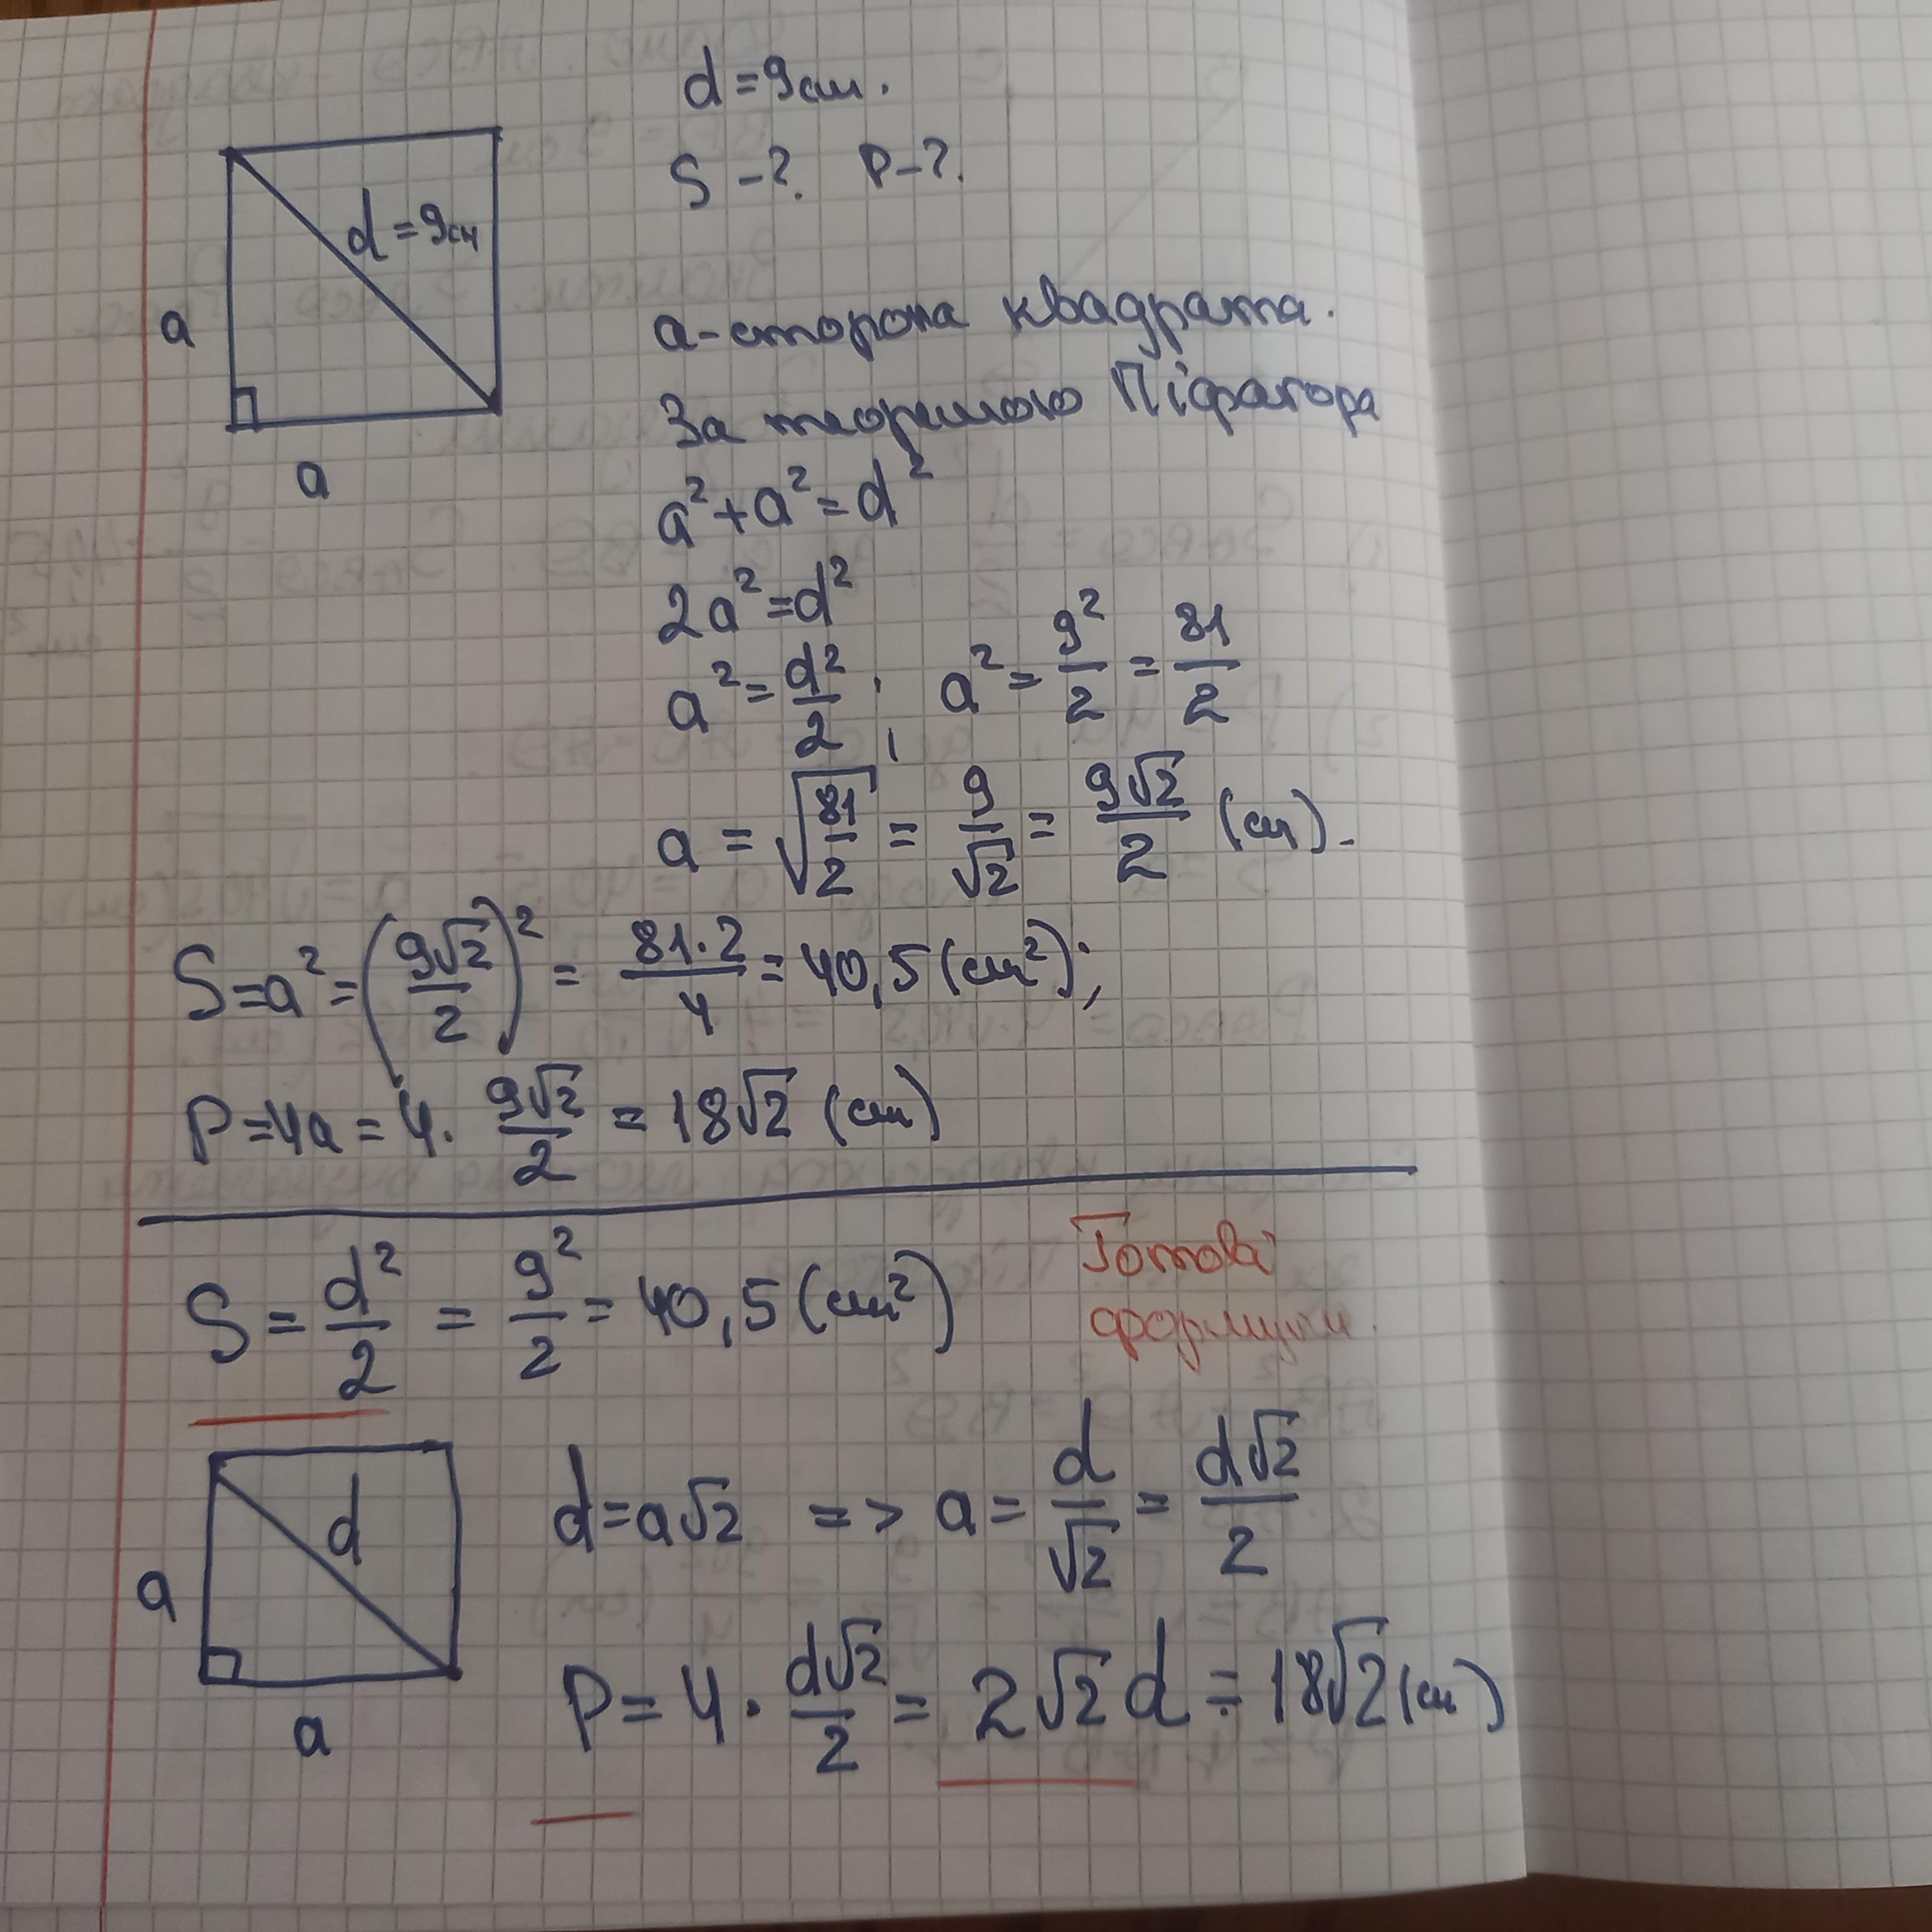 d = 9 см.
S - ?. P - ?.
d = 9 см
a
a
а - сторона квадрата.
За теоремою Піфагора
a² + a² = d²
2a² = d²
a² = d²/2 ; a² = 9²/2 = 81/2
a = √(81/2) = 9/√2 = 9√2/2 (см).
S = a² = (9√2/2)² = 81·2/4 = 40,5 (см²);
P = 4a = 4 · 9√2/2 = 18√2 (см)
S = d²/2 = 9²/2 = 40,5 (см²)
Готові
формули.
d
a
a
d = a√2 => a = d/√2 = d√2/2
P = 4 · d√2/2 = 2√2 d = 18√2 (см)